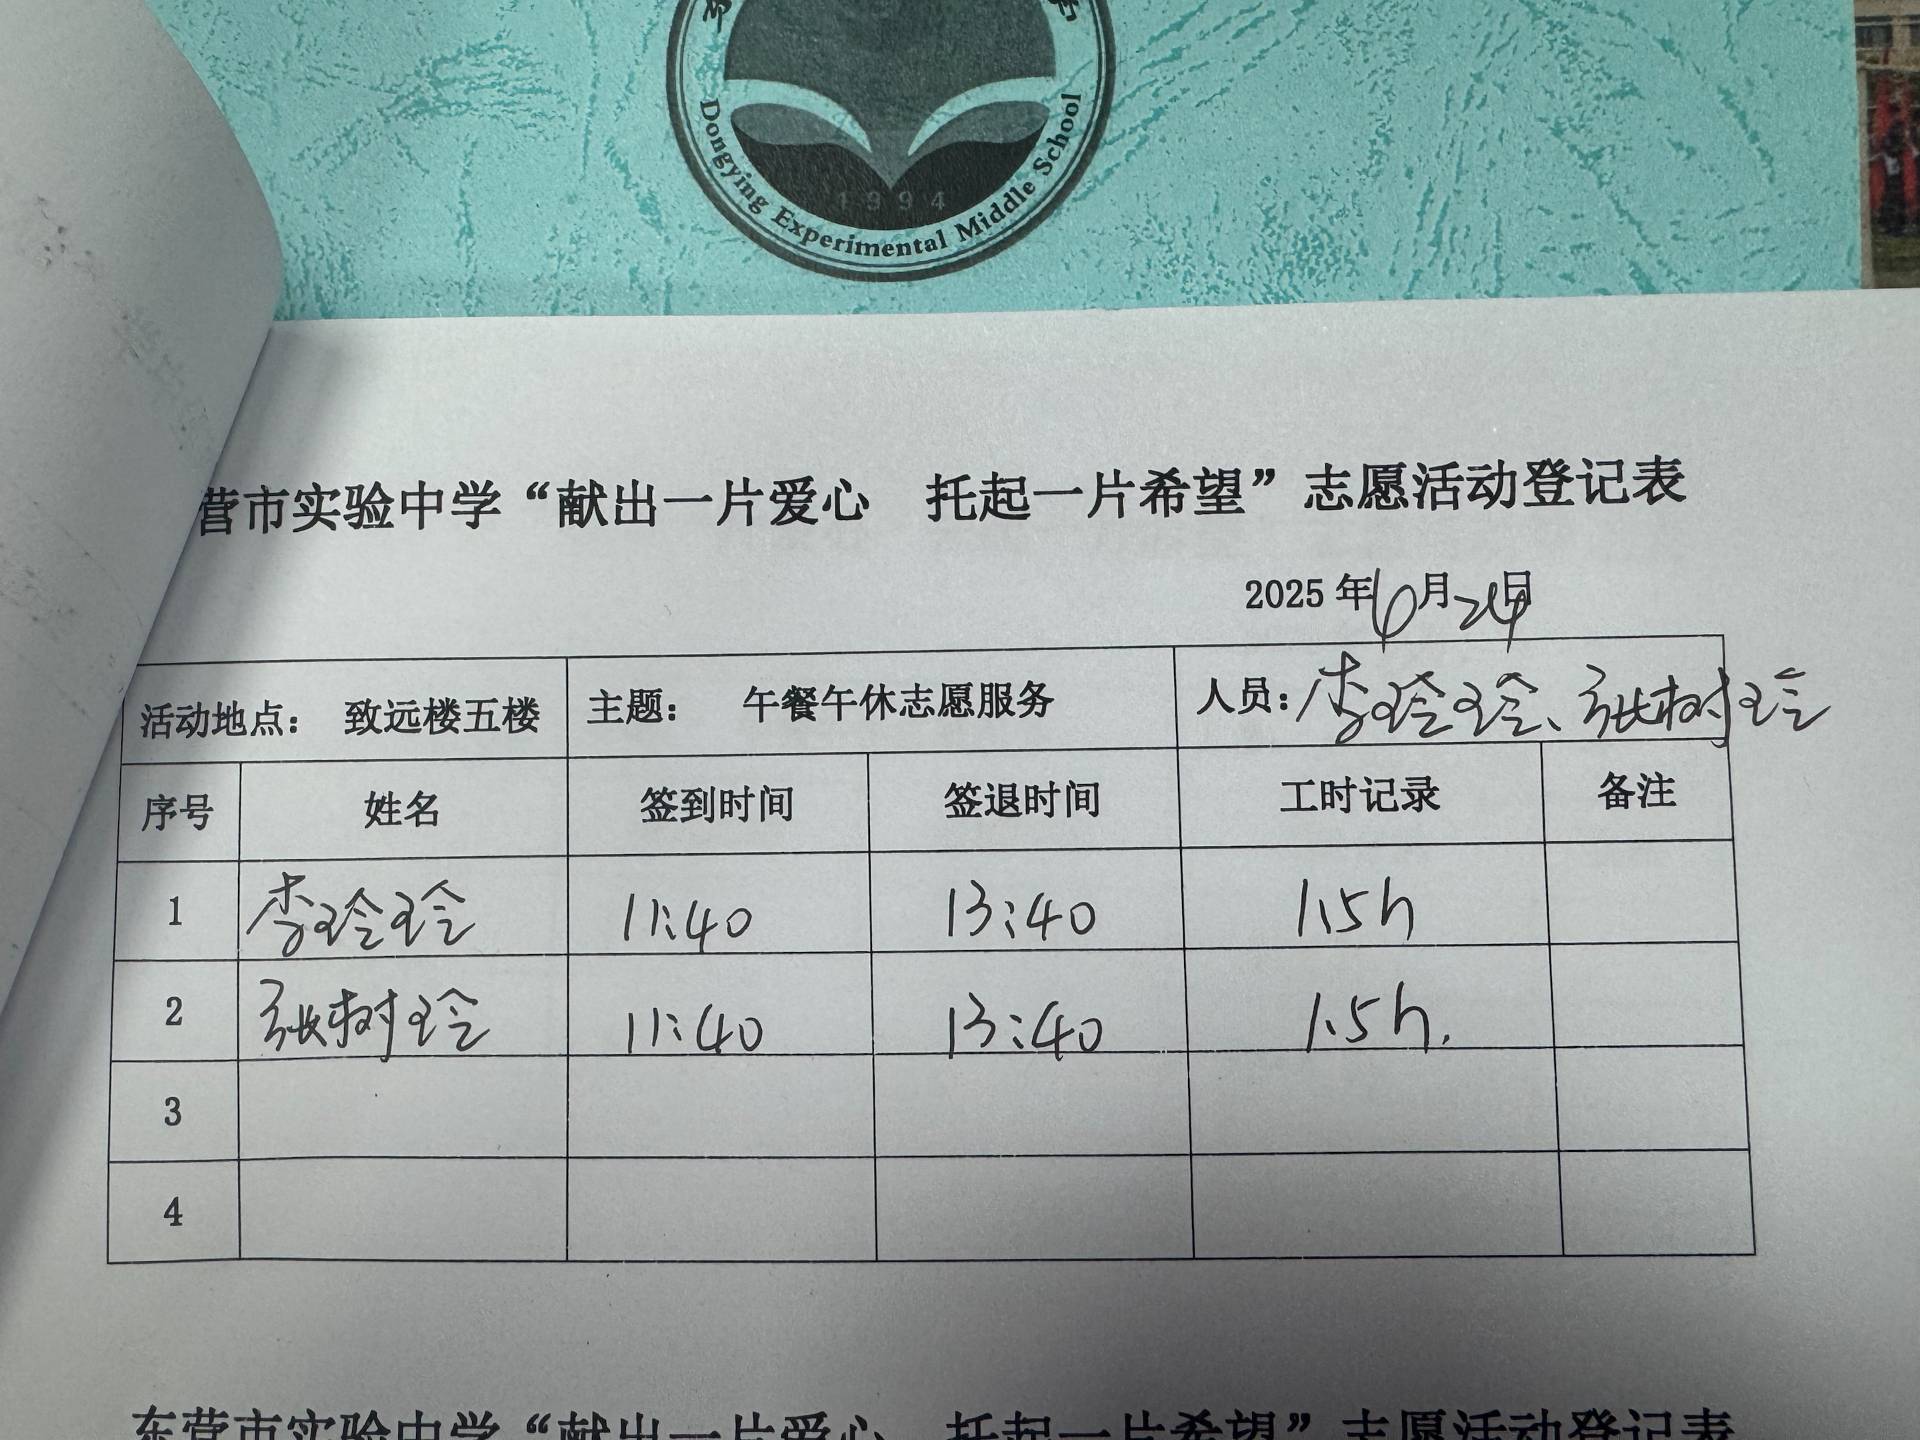 Dongying Experimental Middle School
1994
营市实验中学“献出一片爱心 托起一片希望”志愿活动登记表
2025年6月24日
活动地点： 致远楼五楼 主题： 午餐午休志愿服务 人员：李玲玲、张树玲
序号 姓名 签到时间 签退时间 工时记录 备注
1 李玲玲 11:40 13:40 1.5h
2 张树玲 11:40 13:40 1.5h.
3
4
东营市实验中学“献出一片爱心 托起一片希望”志愿活动登记表